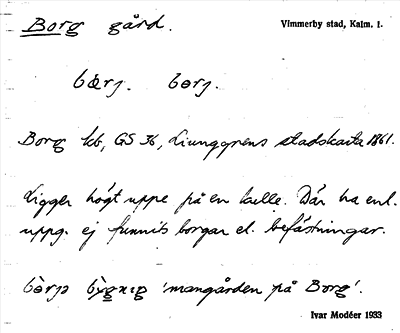 Borg gård.
Vimmerby stad, Kalm. l.
bœrj. bɵrj.
Borg kb, GS 36, Ljunggrens stadskarta 1861.
Ligger högt uppe på en kulle. Där ha enl.
uppg. ej funnits borgar el. befästningar.
'mangården på Borg'.
Ivar Modéer 1933